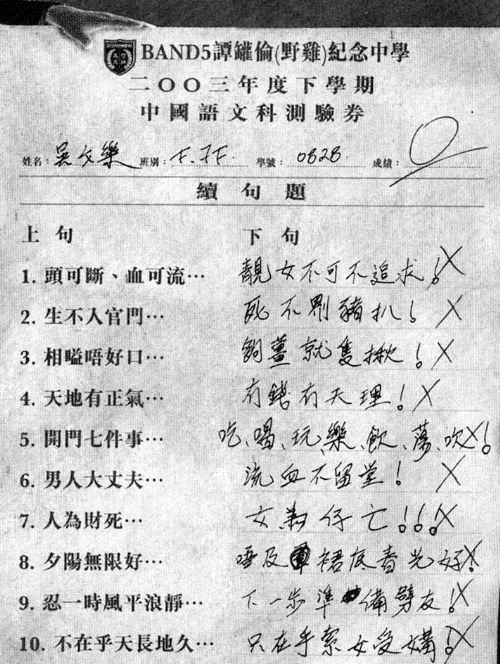 BAND5譚罐倫(野雞)紀念中學
二〇〇三年度下學期
中國語文科測驗券
姓名: 吳文樂 班別: F.5F. 學號: 0828. 成績: 0
續句題
上句 下句
1. 頭可斷、血可流… 靚女不可不追求! X
2. 生不入官門… 死不㓤豬扒! X
3. 相嗌唔好口… 夠薑就隻揪! X
4. 天地有正氣… 有錢有天理! X
5. 開門七件事… 吃、喝、玩、樂、飲、蕩、吹! X
6. 男人大丈夫… 流血不留堂! X
7. 人為財死… 女為仔亡!!! X
8. 夕陽無限好… 唔及裙底春光好! X
9. 忍一時風平浪靜… 下一步準備劈友! X
10. 不在乎天長地久… 只在乎索女受媾! X